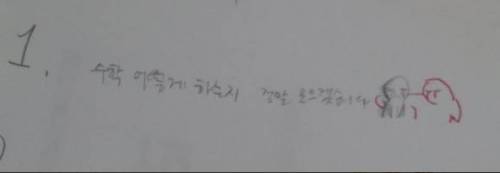 1.
수학 어떻게 하는지 정말 모르겠습니다